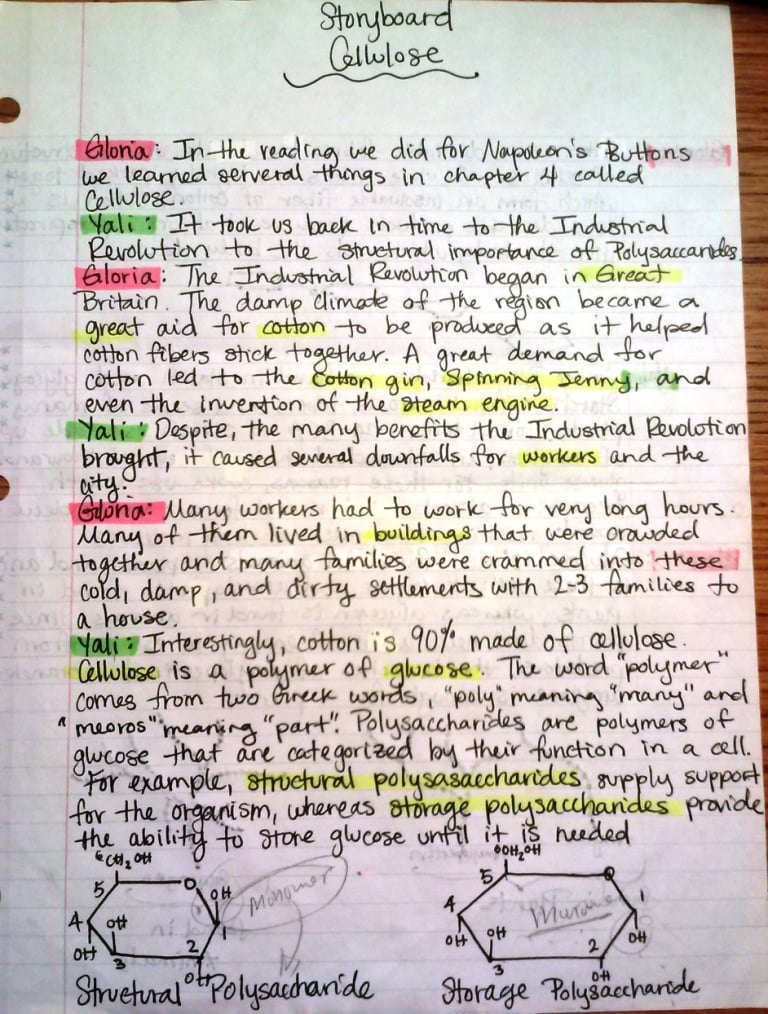 Storyboard
Cellulose
Gloria: In the reading we did for Napoleon's Buttons
we learned serveral things in chapter 4 called
Cellulose.
Yali: It took us back in time to the Industrial
Revolution to the structural importance of Polysaccarides
Gloria: The Industrial Revolution began in Great
Britain. The damp climate of the region became a
great aid for cotton to be produced as it helped
cotton fibers stick together. A great demand for
cotton led to the cotton gin, Spinning Jenny, and
even the invention of the steam engine.
Yali: Despite, the many benefits the Industrial Revolution
brought, it caused several downfalls for workers and the
city.
Gloria: Many workers had to work for very long hours.
Many of them lived in buildings that were crowded
together and many families were crammed into these
cold, damp, and dirty settlements with 2-3 families to
a house.
Yali: Interestingly, cotton is 90% made of cellulose.
Cellulose is a polymer of glucose. The word "polymer"
comes from two Greek words, "poly" meaning "many" and
"meoros" meaning "part". Polysaccharides are polymers of
glucose that are categorized by their function in a cell.
For example, structural polysasaccharides supply support
for the organism, whereas storage polysaccharides provide
the ability to store glucose until it is needed
6 CH2OH
5 O OH
4 OH 1
OH 3 2
OH
Monomer
Structural Polysaccharide
6 OH2OH
5 O
4 1
OH OH OH
3 2
OH
Storage Polysaccharide